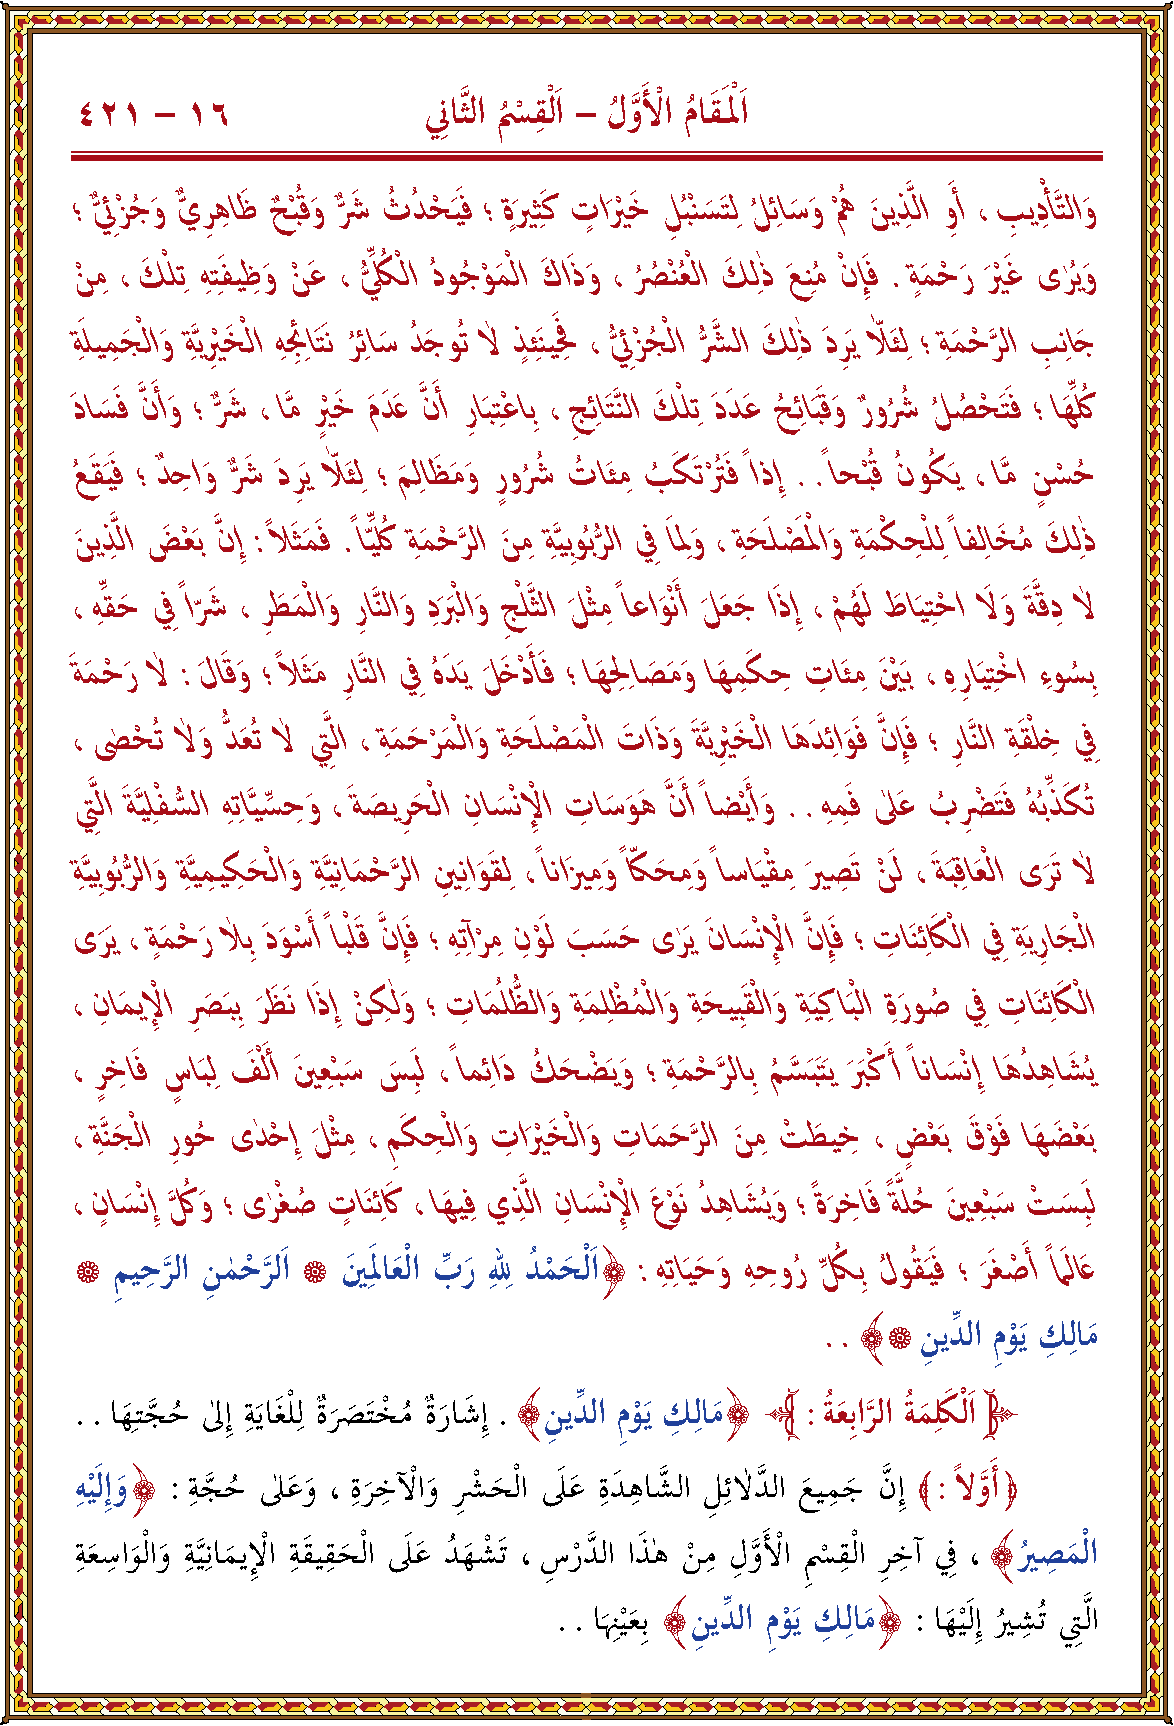 اَلْمَقَامُ الْأَوَّلُ – اَلْقِسْمُ الثَّانِي ١٦ – ٤٢١
وَالتَّأْدِيبِ ، أَوِ الَّذِينَ هُمْ وَسَائِلُ لِتَسَنْبُلِ خَيْرَاتٍ كَثِيرَةٍ ؛ فَيَحْدُثُ شَرٌّ وَقُبْحٌ ظَاهِرِيٌّ وَجُزْئِيٌّ ؛
وَيُرٰى غَيْرَ رَحْمَةٍ . فَإِنْ مُنِعَ ذٰلِكَ الْعُنْصُرُ ، وَذَاكَ الْمَوْجُودُ الْكُلِّيُّ ، عَنْ وَظِيفَتِهِ تِلْكَ ، مِنْ
جَانِبِ الرَّحْمَةِ ؛ لِئَلّٰا يَرِدَ ذٰلِكَ الشَّرُّ الْجُزْئِيُّ ، فَحِينَئِذٍ لٰا تُوجَدُ سَائِرُ نَتَائِجِهِ الْخَيْرِيَّةِ وَالْجَمِيلَةِ
كُلِّهَا ؛ فَتَحْصُلُ شُرُورٌ وَقَبَائِحُ عَدَدَ تِلْكَ النَّتَائِجِ ، بِاعْتِبَارِ أَنَّ عَدَمَ خَيْرٍ مَّا ، شَرٌّ ؛ وَأَنَّ فَسَادَ
حُسْنٍ مَّا ، يَكُونُ قُبْحاً . . إِذاً فَتُرْتَكَبُ مِئَاتُ شُرُورٍ وَمَظَالِمَ ؛ لِئَلّٰا يَرِدَ شَرٌّ وَاحِدٌ ؛ فَيَقَعُ
ذٰلِكَ مُخَالِفاً لِلْحِكْمَةِ وَالْمَصْلَحَةِ ، وَلِمَا فِي الرُّبُوبِيَّةِ مِنَ الرَّحْمَةِ كُلِّيّاً . فَمَثَلاً : إِنَّ بَعْضَ الَّذِينَ
لٰا دِقَّةَ وَلَا احْتِيَاطَ لَهُمْ ، إِذَا جَعَلَ أَنْوَاعاً مِثْلَ الثَّلْجِ وَالْبَرَدِ وَالنَّارِ وَالْمَطَرِ ، شَرّاً فِي حَقِّهِ ،
بِسُوءِ اخْتِيَارِهِ ، بَيْنَ مِئَاتِ حِكَمِهَا وَمَصَالِحِهَا ؛ فَأَدْخَلَ يَدَهُ فِي النَّارِ مَثَلاً ؛ وَقَالَ : لٰا رَحْمَةَ
فِي خِلْقَةِ النَّارِ ؛ فَإِنَّ فَوَائِدَهَا الْخَيْرِيَّةَ وَذَاتَ الْمَصْلَحَةِ وَالْمَرْحَمَةِ ، الَّتِي لٰا تُعَدُّ وَلٰا تُحْصٰى ،
تُكَذِّبُهُ فَتَضْرِبُ عَلٰى فَمِهِ . . وَأَيْضاً أَنَّ هَوَسَاتِ الْإِنْسَانِ الْحَرِيصَةَ ، وَحِسِّيَّاتِهِ السُّفْلِيَّةَ الَّتِي
لٰا تَرَى الْعَاقِبَةَ ، لَنْ تَصِيرَ مِقْيَاساً وَمِحَكّاً وَمِيزَاناً ، لِقَوَانِينِ الرَّحْمَانِيَّةِ وَالْحَكِيمِيَّةِ وَالرُّبُوبِيَّةِ
الْجَارِيَةِ فِي الْكَائِنَاتِ ؛ فَإِنَّ الْإِنْسَانَ يَرٰى حَسَبَ لَوْنِ مِرْآتِهِ ؛ فَإِنَّ قَلْباً أَسْوَدَ بِلٰا رَحْمَةٍ ، يَرَى
الْكَائِنَاتِ فِي صُورَةِ الْبَاكِيَةِ وَالْقَبِيحَةِ وَالْمُظْلِمَةِ وَالظُّلُمَاتِ ؛ وَلٰكِنْ إِذَا نَظَرَ بِبَصَرِ الْإِيمَانِ ،
يُشَاهِدُهَا إِنْسَاناً أَكْبَرَ يَتَبَسَّمُ بِالرَّحْمَةِ ؛ وَيَضْحَكُ دَائِماً ، لَبِسَ سَبْعِينَ أَلْفَ لِبَاسٍ فَاخِرٍ ،
بَعْضَهَا فَوْقَ بَعْضٍ ، خِيطَتْ مِنَ الرَّحَمَاتِ وَالْخَيْرَاتِ وَالْحِكَمِ ، مِثْلَ إِحْدٰى حُورِ الْجَنَّةِ ،
لَبِسَتْ سَبْعِينَ حُلَّةً فَاخِرَةً ؛ وَيُشَاهِدُ نَوْعَ الْإِنْسَانِ الَّذِي فِيهَا ، كَائِنَاتٍ صُغْرٰى ؛ وَكُلَّ إِنْسَانٍ ،
عَالَماً أَصْغَرَ ؛ فَيَقُولُ بِكُلِّ رُوحِهِ وَحَيَاتِهِ : ﴿اَلْحَمْدُ لِلّٰهِ رَبِّ الْعَالَمِينَ ۞ اَلرَّحْمٰنِ الرَّحِيمِ ۞
مَالِكِ يَوْمِ الدِّينِ ۞﴾ . .
﴿ اَلْكَلِمَةُ الرَّابِعَةُ : ﴾ ﴿مَالِكِ يَوْمِ الدِّينِ﴾ . إِشَارَةٌ مُخْتَصَرَةٌ لِلْغَايَةِ إِلٰى حُجَّتِهَا . .
﴿أَوَّلاً :﴾ إِنَّ جَمِيعَ الدَّلٰائِلِ الشَّاهِدَةِ عَلَى الْحَشْرِ وَالْآخِرَةِ ، وَعَلٰى حُجَّةِ : ﴿وَإِلَيْهِ
الْمَصِيرُ﴾ ، فِي آخِرِ الْقِسْمِ الْأَوَّلِ مِنْ هٰذَا الدَّرْسِ ، تَشْهَدُ عَلَى الْحَقِيقَةِ الْإِيمَانِيَّةِ وَالْوَاسِعَةِ
الَّتِي تُشِيرُ إِلَيْهَا : ﴿مَالِكِ يَوْمِ الدِّينِ﴾ بِعَيْنِهَا . .